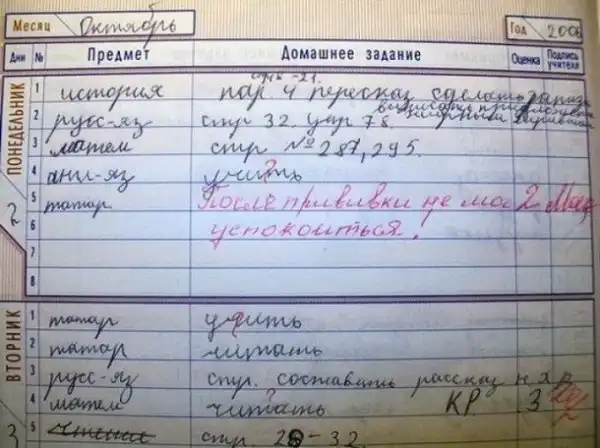 Месяц Октябрь Год 2006
Дни № Предмет Домашнее задание Оценка Подпись учителя
ПОНЕДЕЛЬНИК
2
стр -21.
1 история пар 4 пересказ сделать
2 русс-яз стр 32. упр 78.
3 матем стр № 287, 295.
4 анг-яз учить
?
5 татар После прививки не мог 2
6 успокоиться!
7
8
ВТОРНИК
3
1 татар учить
2 татар читать
3 русс-яз стр. составить рассказ
4 матем читать КР 3
?
5 чтение стр. 28-32